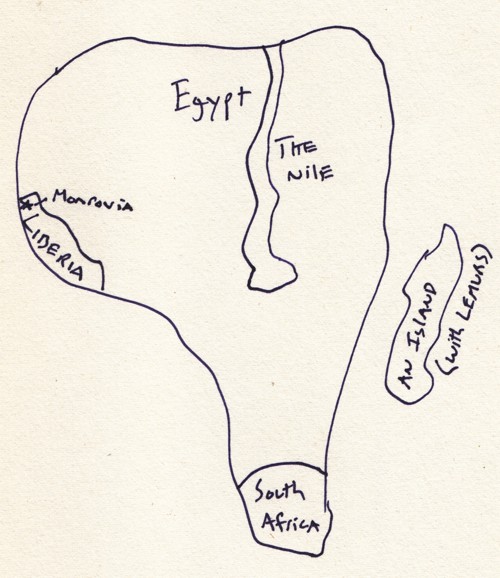 Egypt
THE
NiLE
MONROVIA
LIBERIA
AN ISLAND
(with LEMURS)
South
AfricA